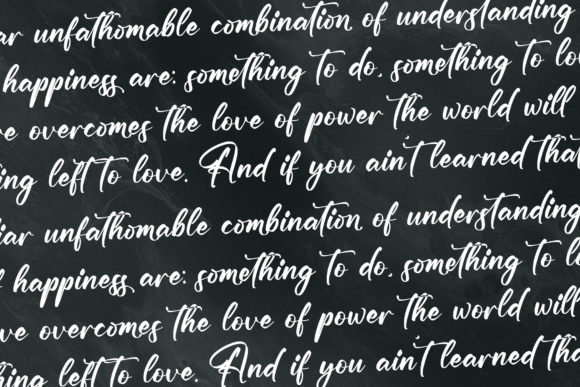 iar unfathomable combination of understanding
happiness are: something to do. something to lo
ve overcomes the love of power the world will
ing left to love. And if you ain't learned that
iar unfathomable combination of understanding
f happiness are: something to do. something to lo
ve overcomes the love of power the world will
hing left to love. And if you ain't learned tha